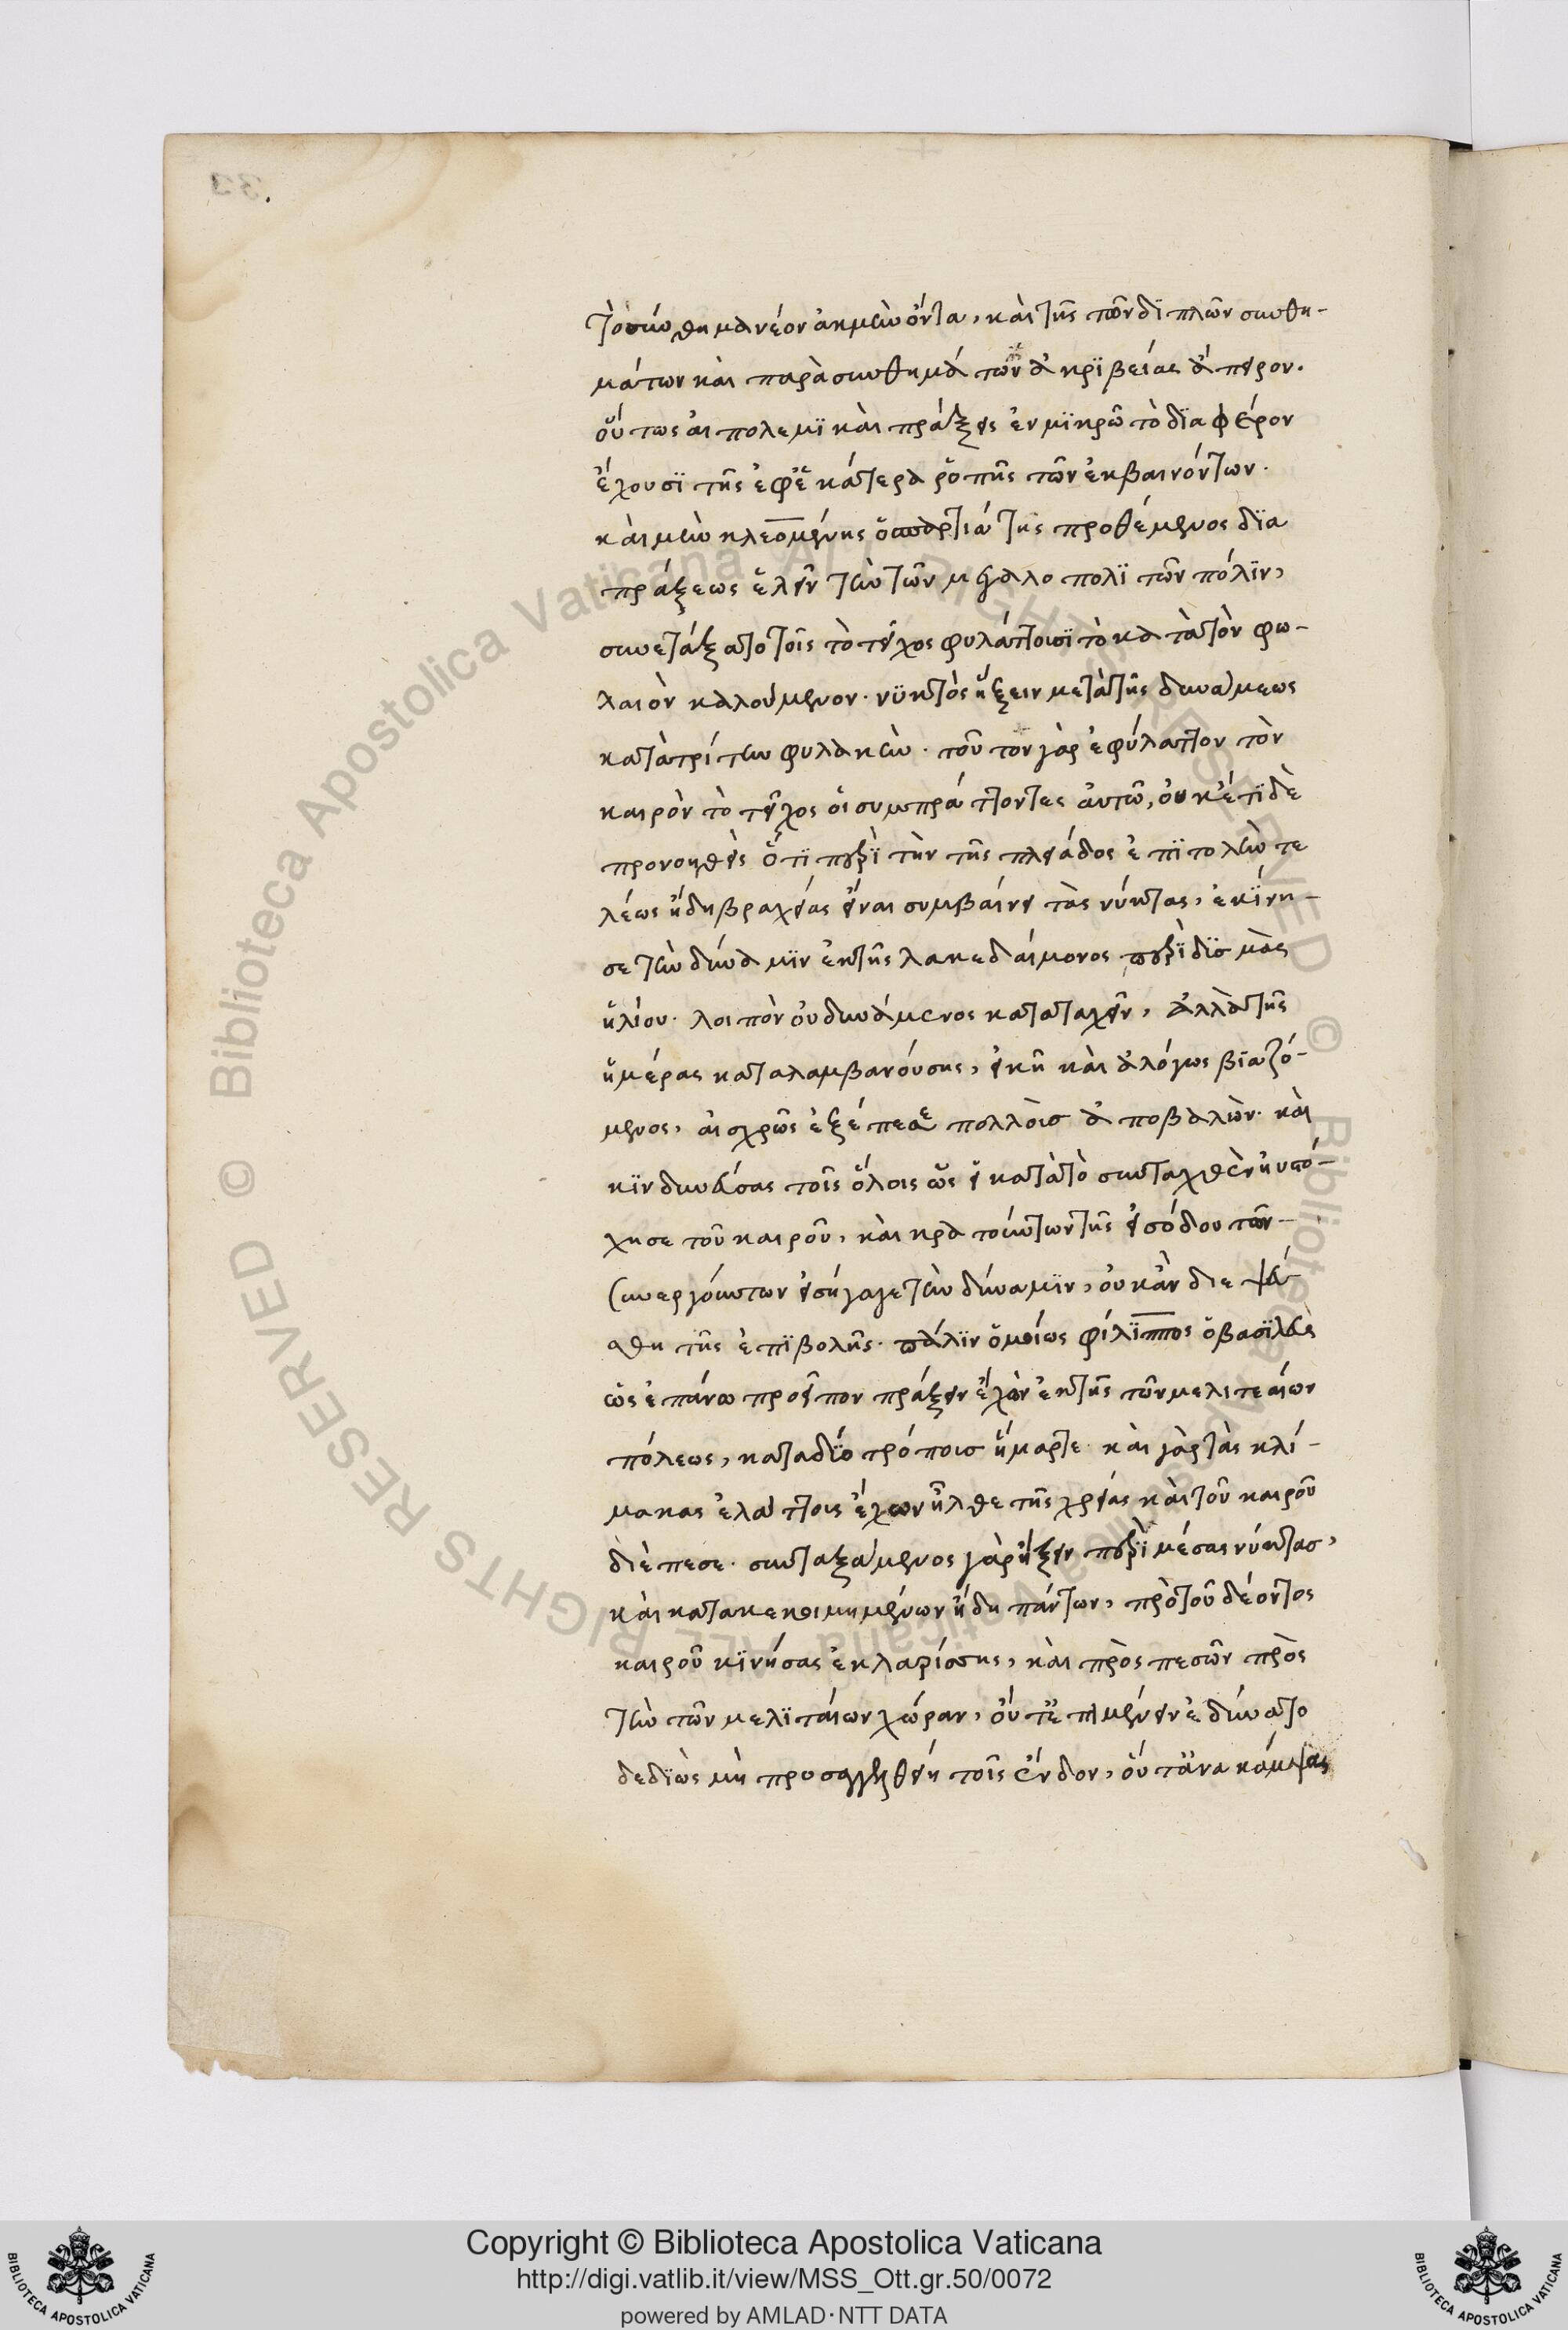 τὸ σύνθημα νέον ἀκμὴν ὄντα, καὶ τῆς τῶν διπλῶν συνθη-
μάτων καὶ παρὰ συνθημάτων ἀκριβείας ἄπειρον.
οὕτως αἱ πολεμϊκαὶ πράξεις ἐν μϊκρῶ τὸ δϊαφέρον
ἔχουσϊ τῆς ἐφ' ἑκάτερα ῥοπῆς τῶν ἐκβαινόντων.
καὶ μὴν κλεομένης ὁ σπαρτιάτης προθέμενος δϊα
πράξεως ἑλεῖν τὴν τῶν μεγαλοπολϊτῶν πόλϊν,
συνετάξατο τοῖς τὸ τεῖχος φυλάττουσϊ τὸ κατὰ τὸν φω-
λαιὸν καλούμενον. νϋκτὸς ἥξειν μετὰ τῆς δυνάμεως
κατὰ τρίτην φυλακὴν. τοῦτον γὰρ ἐφύλαττον τὸν
καιρὸν τὸ τεῖχος οἱ συμπράττοντες αὐτῶ, οὐκέτϊ δὲ
προνοηθεὶς ὅτϊ περὶ τὴν τῆς πλειάδος ἐπϊτολὴν τε
λέως ἤδη βραχείας εἶναι συμβαίνει τὰς νύκτας, ἐκίνη-
σε τὴν δύναμϊν ἐκ τῆς λακεδαίμονος περὶ δϋσμὰς
ἡλίου. λοιπὸν οὐ δυνάμενος καταταχεῖν, ἀλλὰ τῆς
ἡμέρας καταλαμβανούσης, εἰκῆ καὶ ἀλόγως βϊαζό-
μενος, αἰσχρῶς ἐξέπεσε πολλοὺς ἀποβαλὼν. καὶ
κϊνδυνεύσας τοῖς ὅλοις ὃς εἰ κατὰ τὸ συνταχθὲν ηὐστό-
χησε τοῦ καιροῦ, καὶ κρατούντων τῆς εἰσόδου τῶν
συνεργούντων εἰσήγαγε τὴν δύναμϊν, οὐκ ἂν διεψεύ-
σθη τῆς ἐπϊβολῆς. πάλϊν ὁμοίως φίλϊππος ὁ βασϊλεὺς
ὡς ἐπάνω προεῖπον πράξειν ἔχὼν ἐκ τῆς τῶν μελιτεαίων
πόλεως, κατὰ δϋο τρόπους ἥμαρτε. καὶ γὰρ τὰς κλί-
μακας ἐλάττους ἔχων ἦλθε τῆς χρείας καὶ τοῦ καιροῦ
διέπεσε. συνταξάμενος γὰρ ἥξειν περὶ μέσας νύκτας,
καὶ κατακεκοιμημένων ἤδη πάντων, πρὸ τοῦ δέοντος
καιροῦ κϊνήσας ἐκ λαρίσσης, καὶ πρὸς πεσὼν πρὸς
τὴν τῶν μελϊταίων χώραν, οὔτ' ἐπιμένειν ἐδύνατο
δεδϊὼς μὴ προσαγγελθείη τοῖς ἔνδον, οὔτ' ἀνακάμψας
Copyright © Biblioteca Apostolica Vaticana
http://digi.vatlib.it/view/MSS_Ott.gr.50/0072
powered by AMLAD·NTT DATA